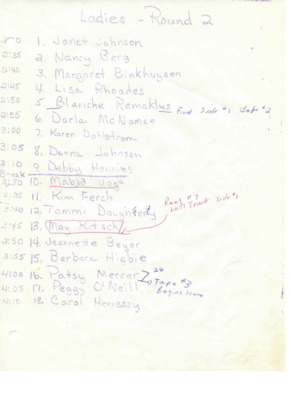 Ladies - Round 2
1. Janet Johnson
2:35 2. Nancy Berg
2:40 3. Margaret Binkhuysen
2:45 4. Lisa Rhoades
2:50 5. Blanche Remaklus End Side #1 Tape #2
2:55 6. Darla McNamee
3:00 7. Karen
3:05 8. Donna Johnson
3:10 9 Debby
Break
3:30 10. Mabel Vogt
3:35 11. Kim Ferch
3:40 12 Tammi Daugherty
Reel #7
Left Track Side #1
3:45 13. May Kitsch
3:50 14. Jeannette Beyer
3:55 15. Barbara Higbie
4:00 16. Patsy Mercer
4:05 17. Peggy O'Neill Tape #3
Begins Here
4:10 18. Carol Hennessy